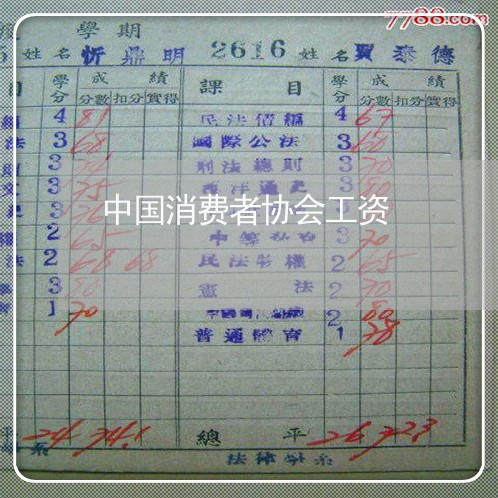 7788.com
度 學期
5 姓名 忻鼎明 2616 姓名 賈泰德
目 學分 成績 課目 學分 成績
分數 扣分 實得 分數 扣分 實得
4 81 民法債編 4 67
法 3 68 國際公法 3 60
3 刑法總則 3 70
文 3 75 西洋通史 3 80
3 76
中国消费者协会工资
權 2 65 3 70
法 2 68 68 民法物權 2 65
3 80 憲法 2 70
育 1 70 2 80
普通體育 1 78
平 24 74.1 總平 26 72.3
系 法律學系